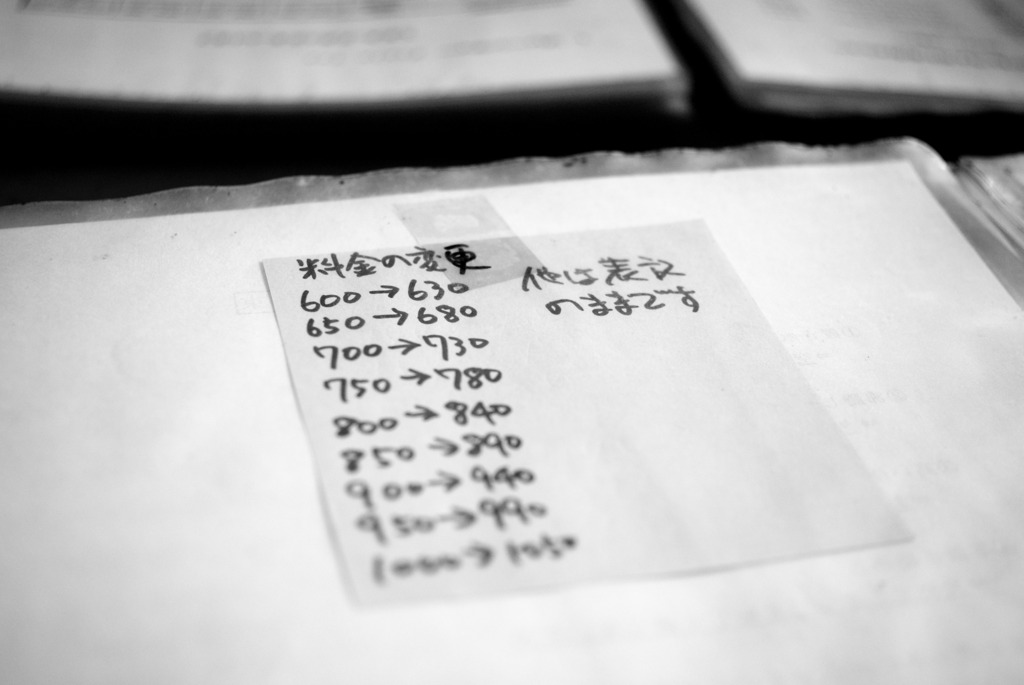 料金の変更
600→630
650→680
700→730
750→780
800→840
850→890
900→940
950→990
1000→1050
他は表記
のままです